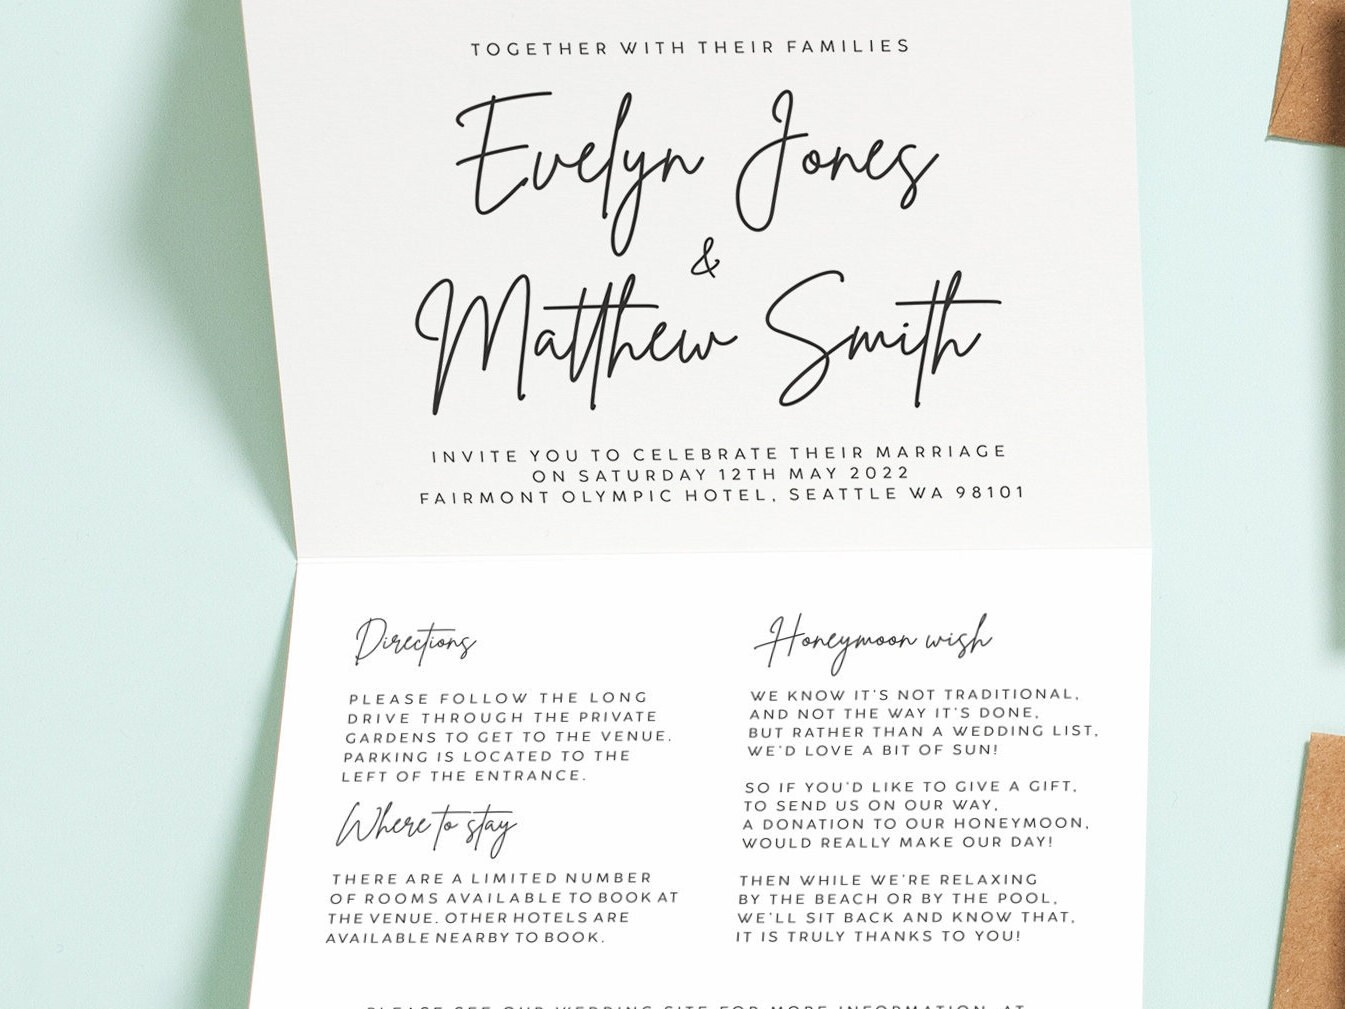 TOGETHER WITH THEIR FAMILIES
Evelyn Jones
&
Matthew Smith
INVITE YOU TO CELEBRATE THEIR MARRIAGE
ON SATURDAY 12TH MAY 2022
FAIRMONT OLYMPIC HOTEL, SEATTLE WA 98101
Directions
PLEASE FOLLOW THE LONG
DRIVE THROUGH THE PRIVATE
GARDENS TO GET TO THE VENUE.
PARKING IS LOCATED TO THE
LEFT OF THE ENTRANCE.
Where to stay
THERE ARE A LIMITED NUMBER
OF ROOMS AVAILABLE TO BOOK AT
THE VENUE. OTHER HOTELS ARE
AVAILABLE NEARBY TO BOOK.
Honeymoon wish
WE KNOW IT'S NOT TRADITIONAL,
AND NOT THE WAY IT'S DONE,
BUT RATHER THAN A WEDDING LIST,
WE'D LOVE A BIT OF SUN!
SO IF YOU'D LIKE TO GIVE A GIFT,
TO SEND US ON OUR WAY,
A DONATION TO OUR HONEYMOON,
WOULD REALLY MAKE OUR DAY!
THEN WHILE WE'RE RELAXING
BY THE BEACH OR BY THE POOL,
WE'LL SIT BACK AND KNOW THAT,
IT IS TRULY THANKS TO YOU!
PLEASE SEE OUR WEDDING SITE FOR MORE INFORMATION, AT